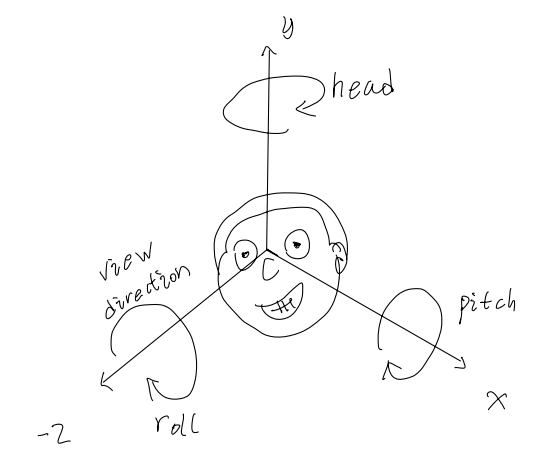 y
head
view
direction
pitch
x
roll
-z